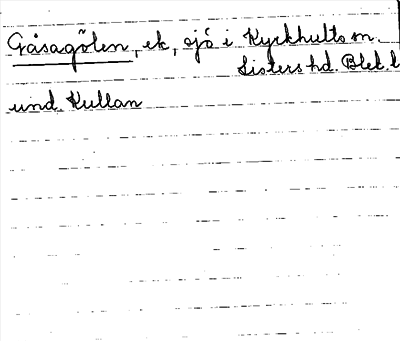 Gåsagölen, ek, sjö i Kyrkhults sn.
Listers hd. Blek. l
und. Kullan